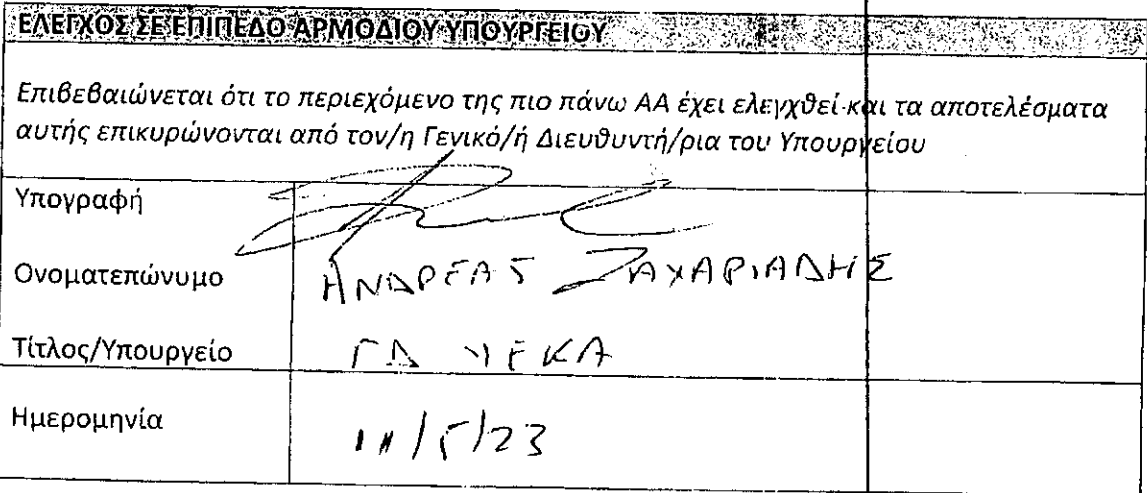 ΕΛΕΓΧΟΣ ΣΕ ΕΠΙΠΕΔΟ ΑΡΜΟΔΙΟΥ ΥΠΟΥΡΓΕΙΟΥ
Επιβεβαιώνεται ότι το περιεχόμενο της πιο πάνω ΑΑ έχει ελεγχθεί και τα αποτελέσματα
αυτής επικυρώνονται από τον/η Γενικό/ή Διευθυντή/ρια του Υπουργείου
Υπογραφή
Ονοματεπώνυμο ΑΝΔΡΕΑΣ ΖΑΧΑΡΙΑΔΗΣ
Τίτλος/Υπουργείο ΓΔ ΥΕΚΑ
Ημερομηνία /5/23